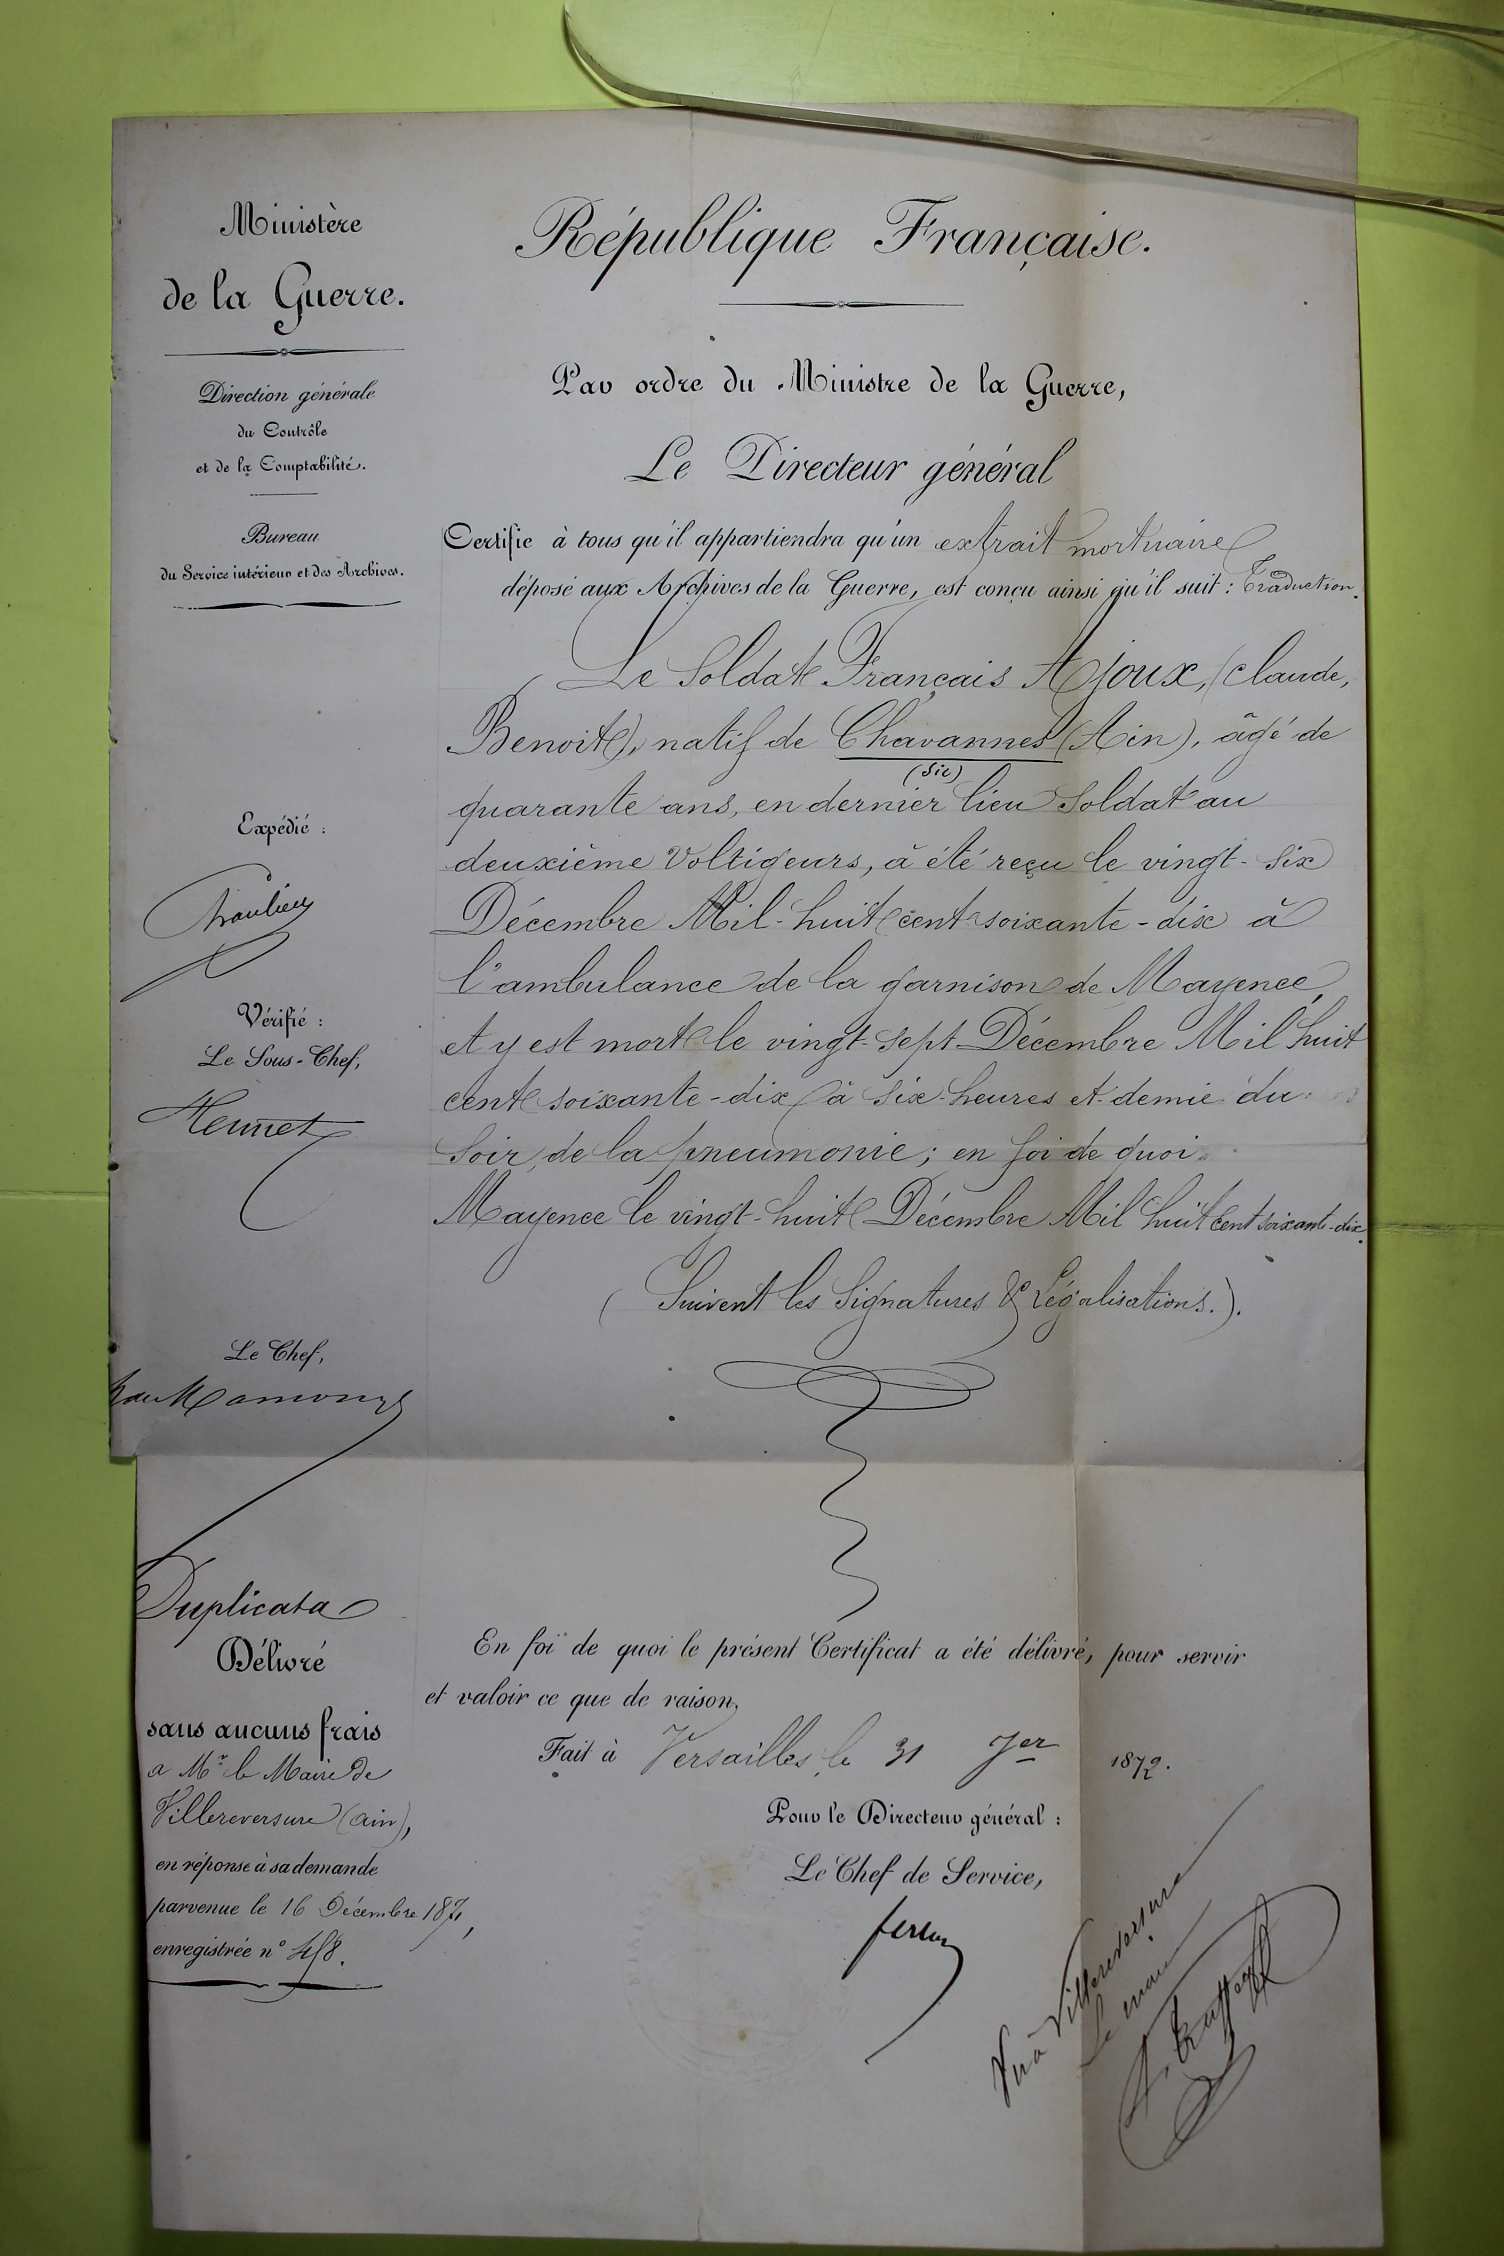 Ministère
de la Guerre.
Direction générale
du Contrôle
et de la Comptabilité.
Bureau
du Service intérieur et des Archives.
République Française.
Par ordre du Ministre de la Guerre,
Le Directeur général
Certifie à tous qu'il appartiendra qu'un extrait mortuaire
déposé aux Archives de la Guerre, est conçu ainsi qu'il suit : Traduction.
Le Soldat Français Ajoux, (Claude,
Benoit), natif de Chavannes (Ain), âgé de
(Sic)
quarante ans, en dernier lieu Soldat au
deuxième Voltigeurs, à été reçu le vingt-six
Décembre Mil-huit cent soixante-dix à
l'ambulance de la garnison de Mayence,
et y est mort le vingt-sept Décembre Mil huit
cent soixante-dix à six heures et demie du
Soir, de la pneumonie ; en foi de quoi.
Mayence le vingt-huit Décembre Mil huit cent soixante-dix.
(Suivent les Signatures & Légalisations.).
Expédié :
Vérifié :
Le Sous-Chef,
Hennet
Le Chef,
Duplicata
Délivré
sans aucuns frais
a Mr le Maire de
Villereversure (ain),
en réponse à sa demande
parvenue le 16 Décembre 1871,
enregistrée n° 458.
En foi de quoi le présent Certificat a été délivré, pour servir
et valoir ce que de raison,
Fait à Versailles, le 31 Jer 1872.
Pour le Directeur général :
Le Chef de Service,
Vu à Villereversure
Le maire